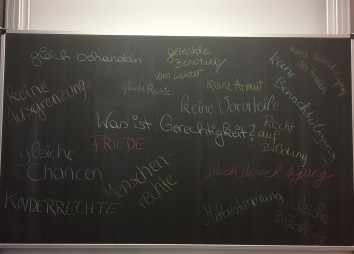 gleich behandeln
gerechte
Benotung
vom Lehrer
keine
Ausgrenzung
gleiche Rechte
keine Armut
keine
Benachteiligung
keine Vorurteile
Was ist Gerechtigkeit?
Recht
auf
Bildung
FRIEDE
gleiche
Chancen
Menschen-
rechte
KINDERRECHTE
Mitbestimmung
gleiche